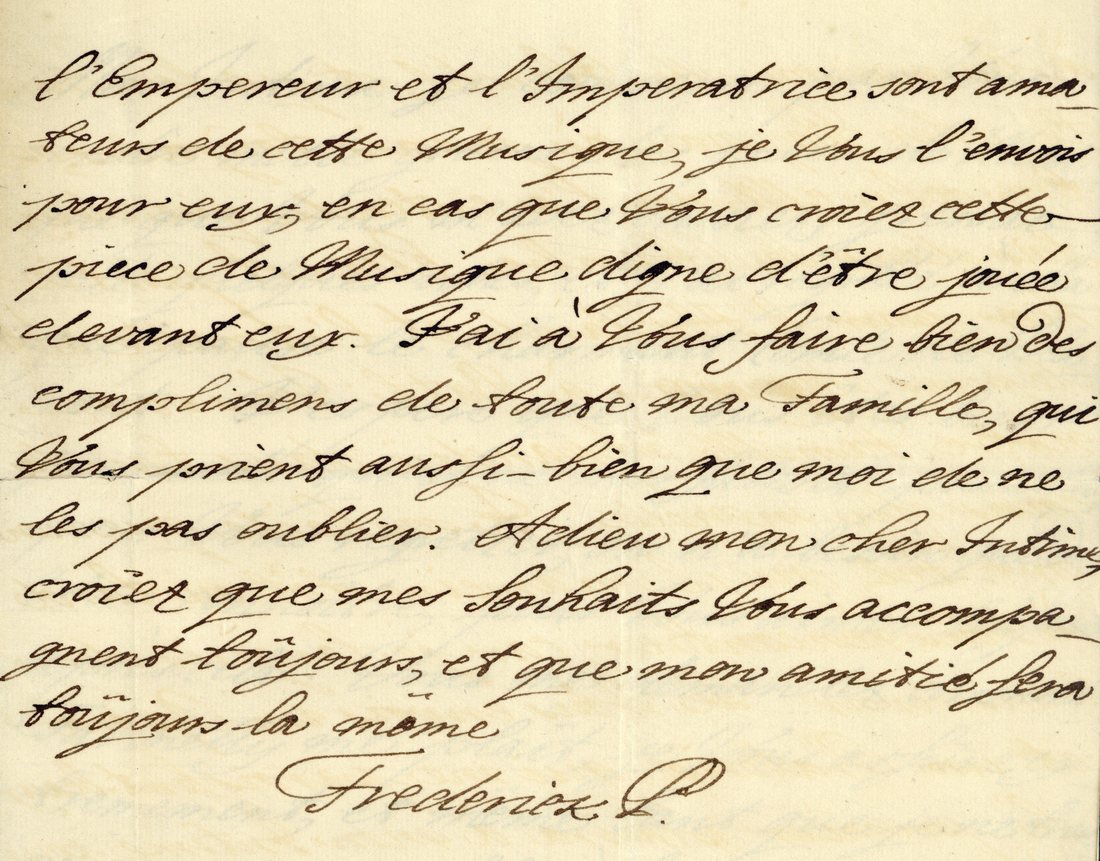 l'Empereur et l'Imperatrice sont ama_
teurs de cette Musique, je Vous l'envois
pour eux, en cas que Vous croiez cette
piece de Musique digne d'être jouée
devant eux. J'ai à Vous faire bien des
complimens de toute ma Famille, qui
Vous prient aussi-bien que moi de ne
les pas oublier. Adieu mon cher Intime,
croïez que mes souhaits Vous accompa_
gnent toûjours, et que mon amitié sera
toûjours la même
Frederick P.